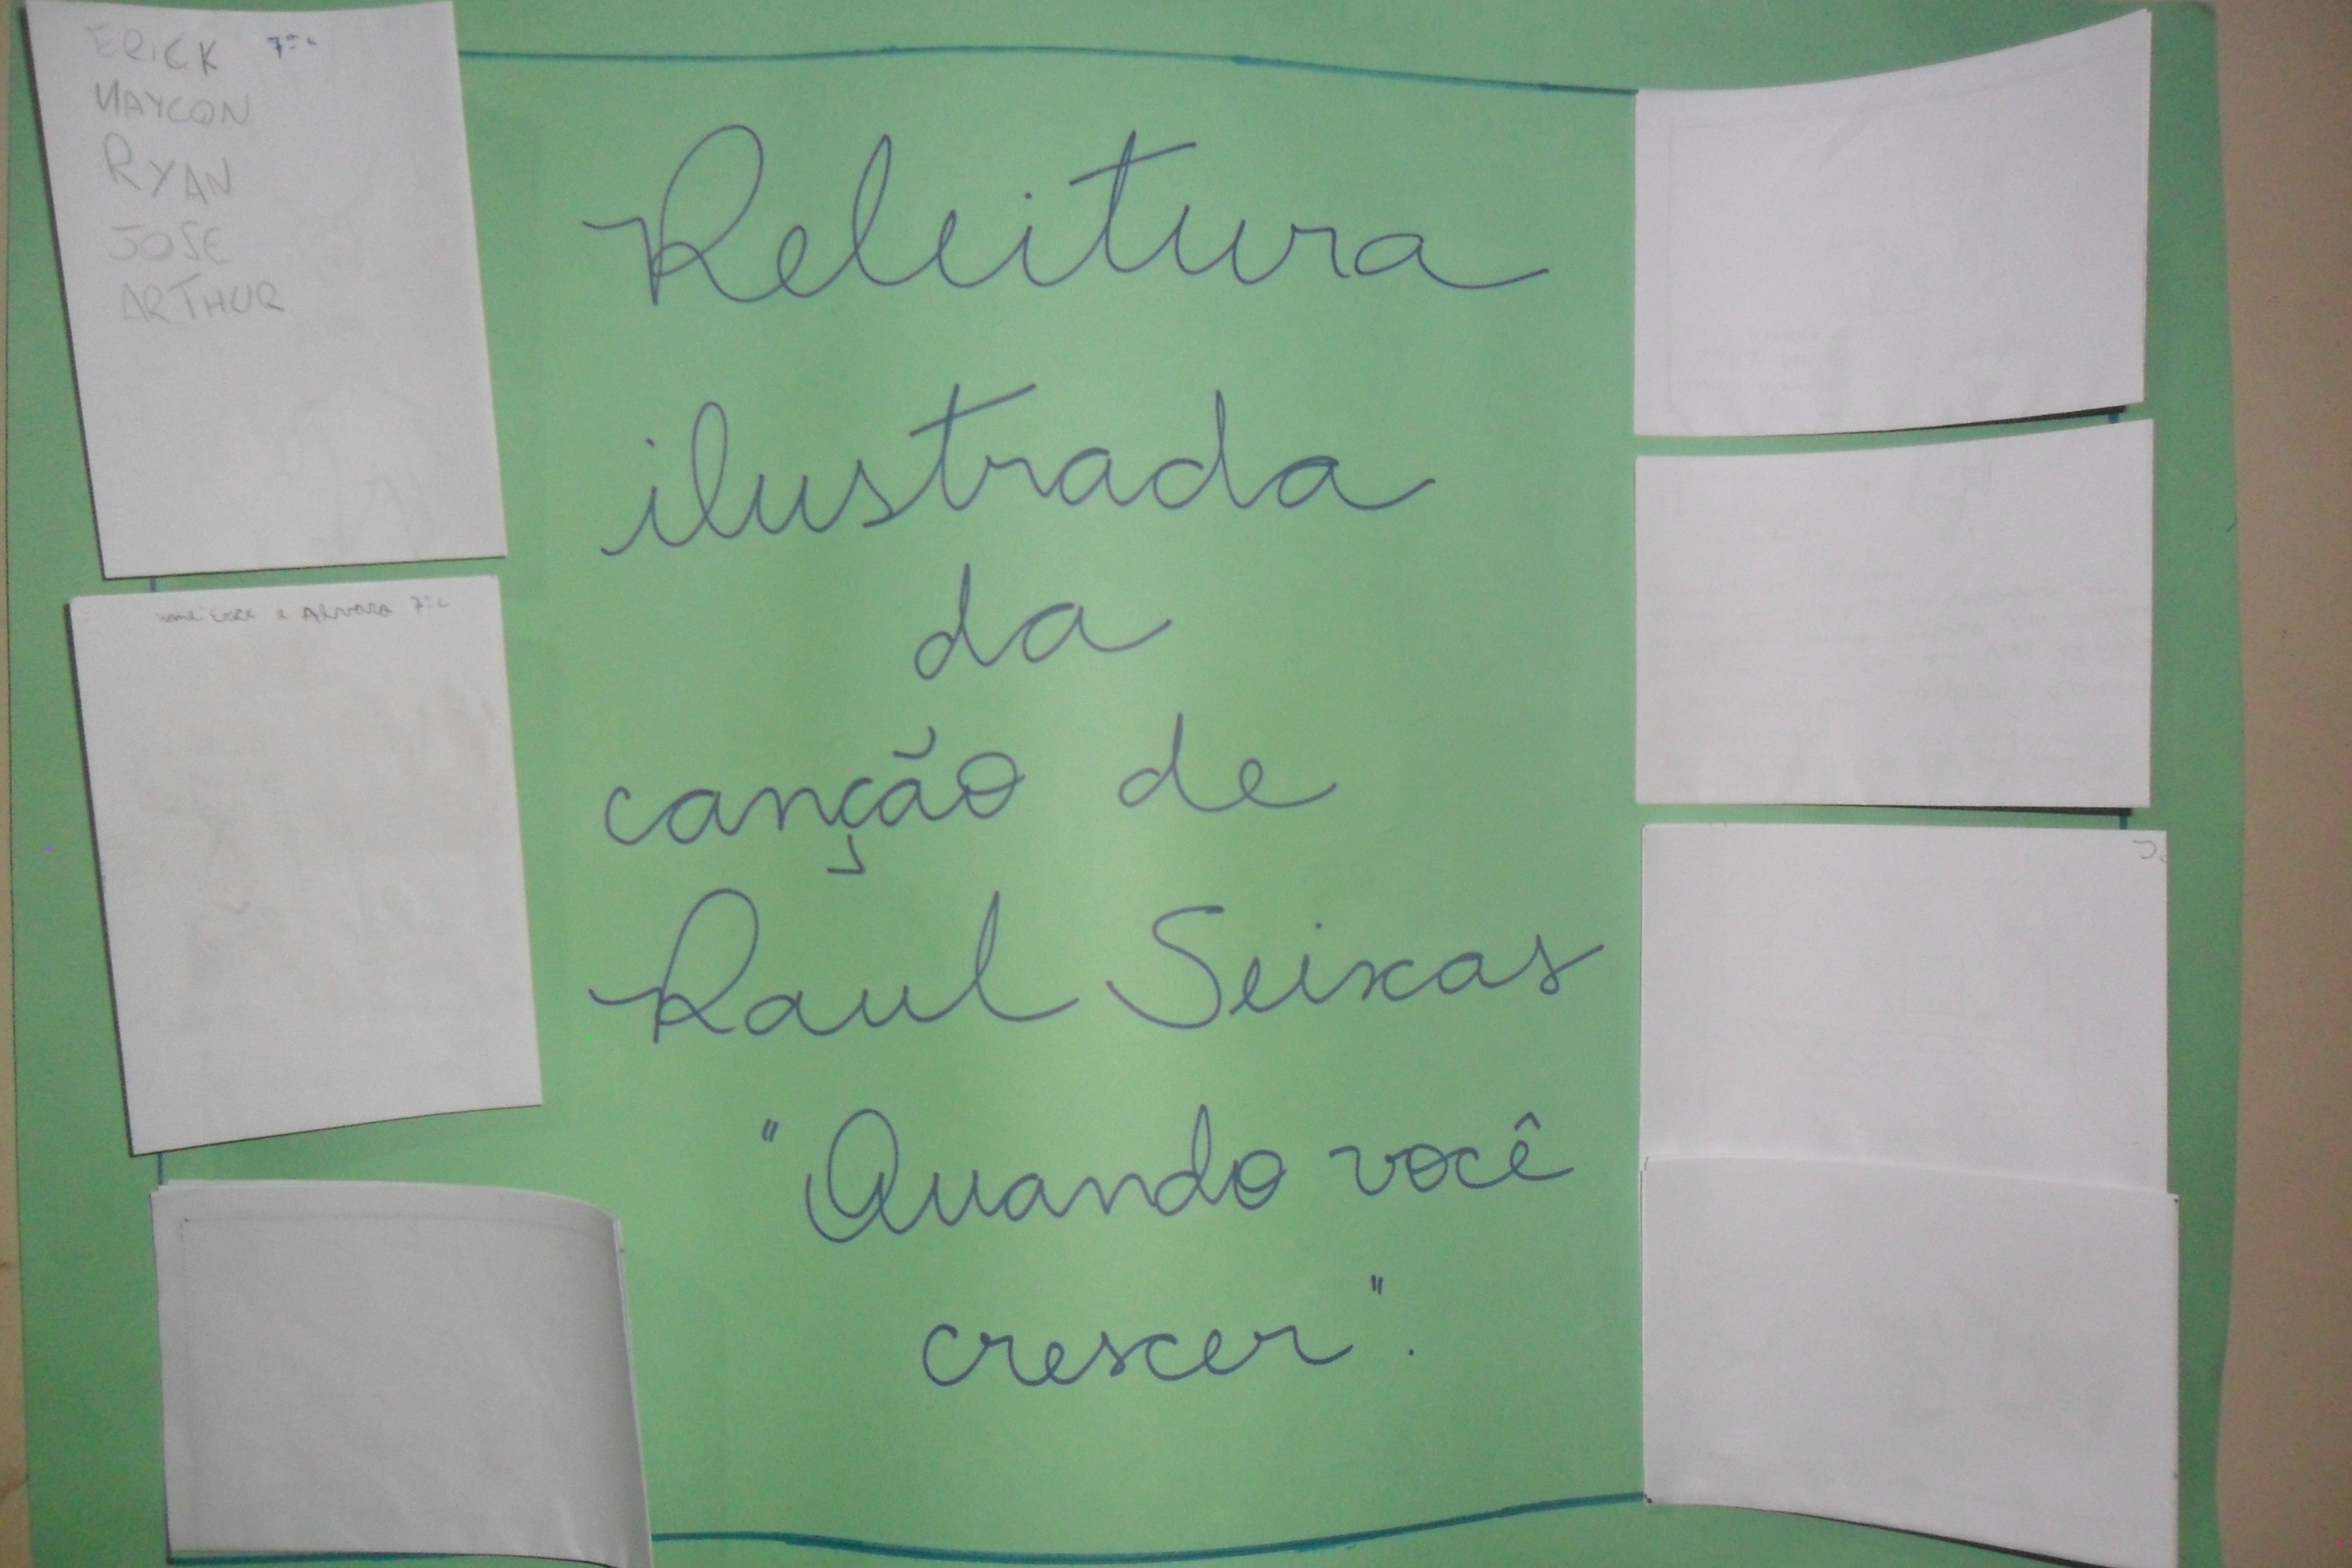 ERICK 7º C
MAYCON
RYAN
JOSE
ARTHUR
nome: Erick e Alvaro 7º C
Releitura
ilustrada
da
canção de
Raul Seixas
"Quando você
crescer".